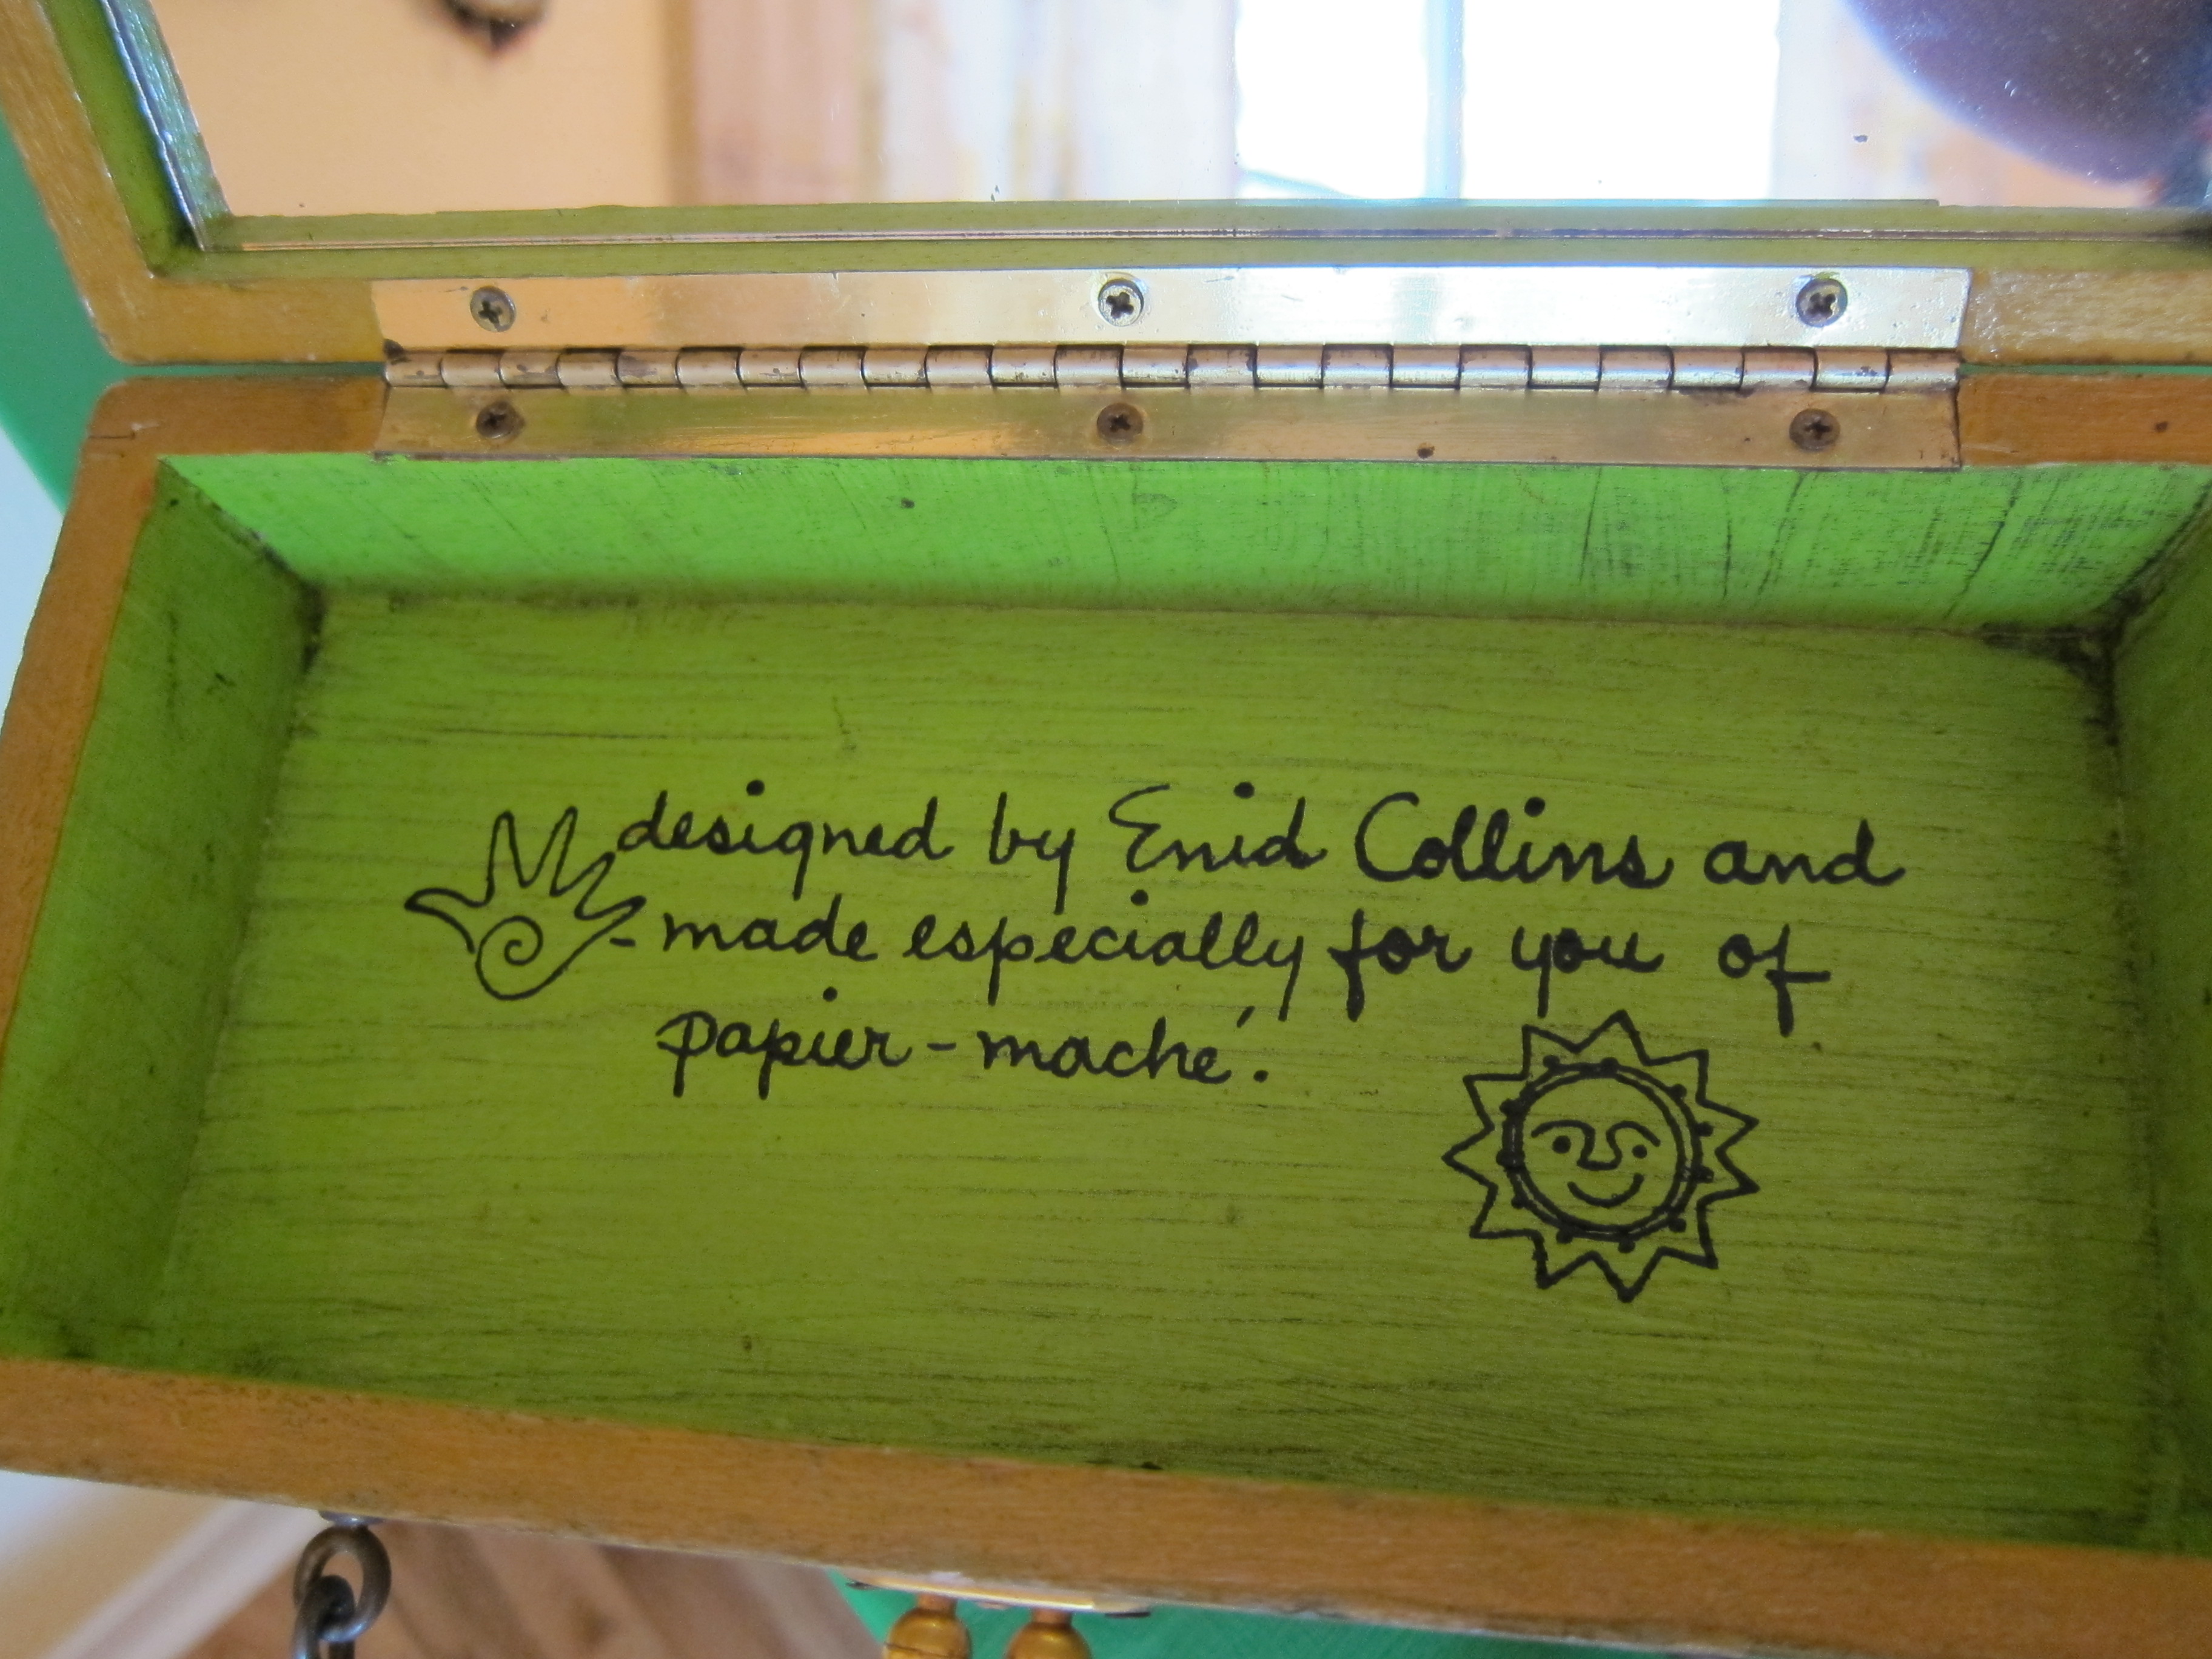 designed by Enid Collins and
- made especially for you of
papier - maché.